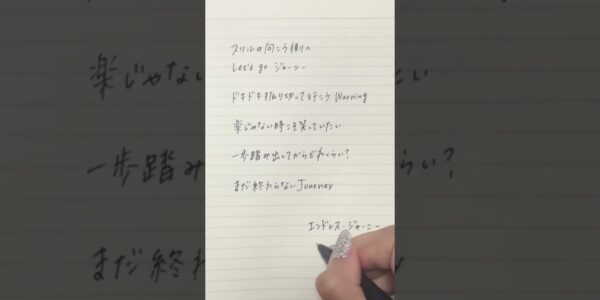 スリルの向こう側へ
Let's go ジャーニー
ドキドキ振り切って行こう Warning
楽じゃない時こそ笑っていたい
一歩踏み出してからどれくらい?
まだ終わらない Journey
エンドレス・ジャーニー